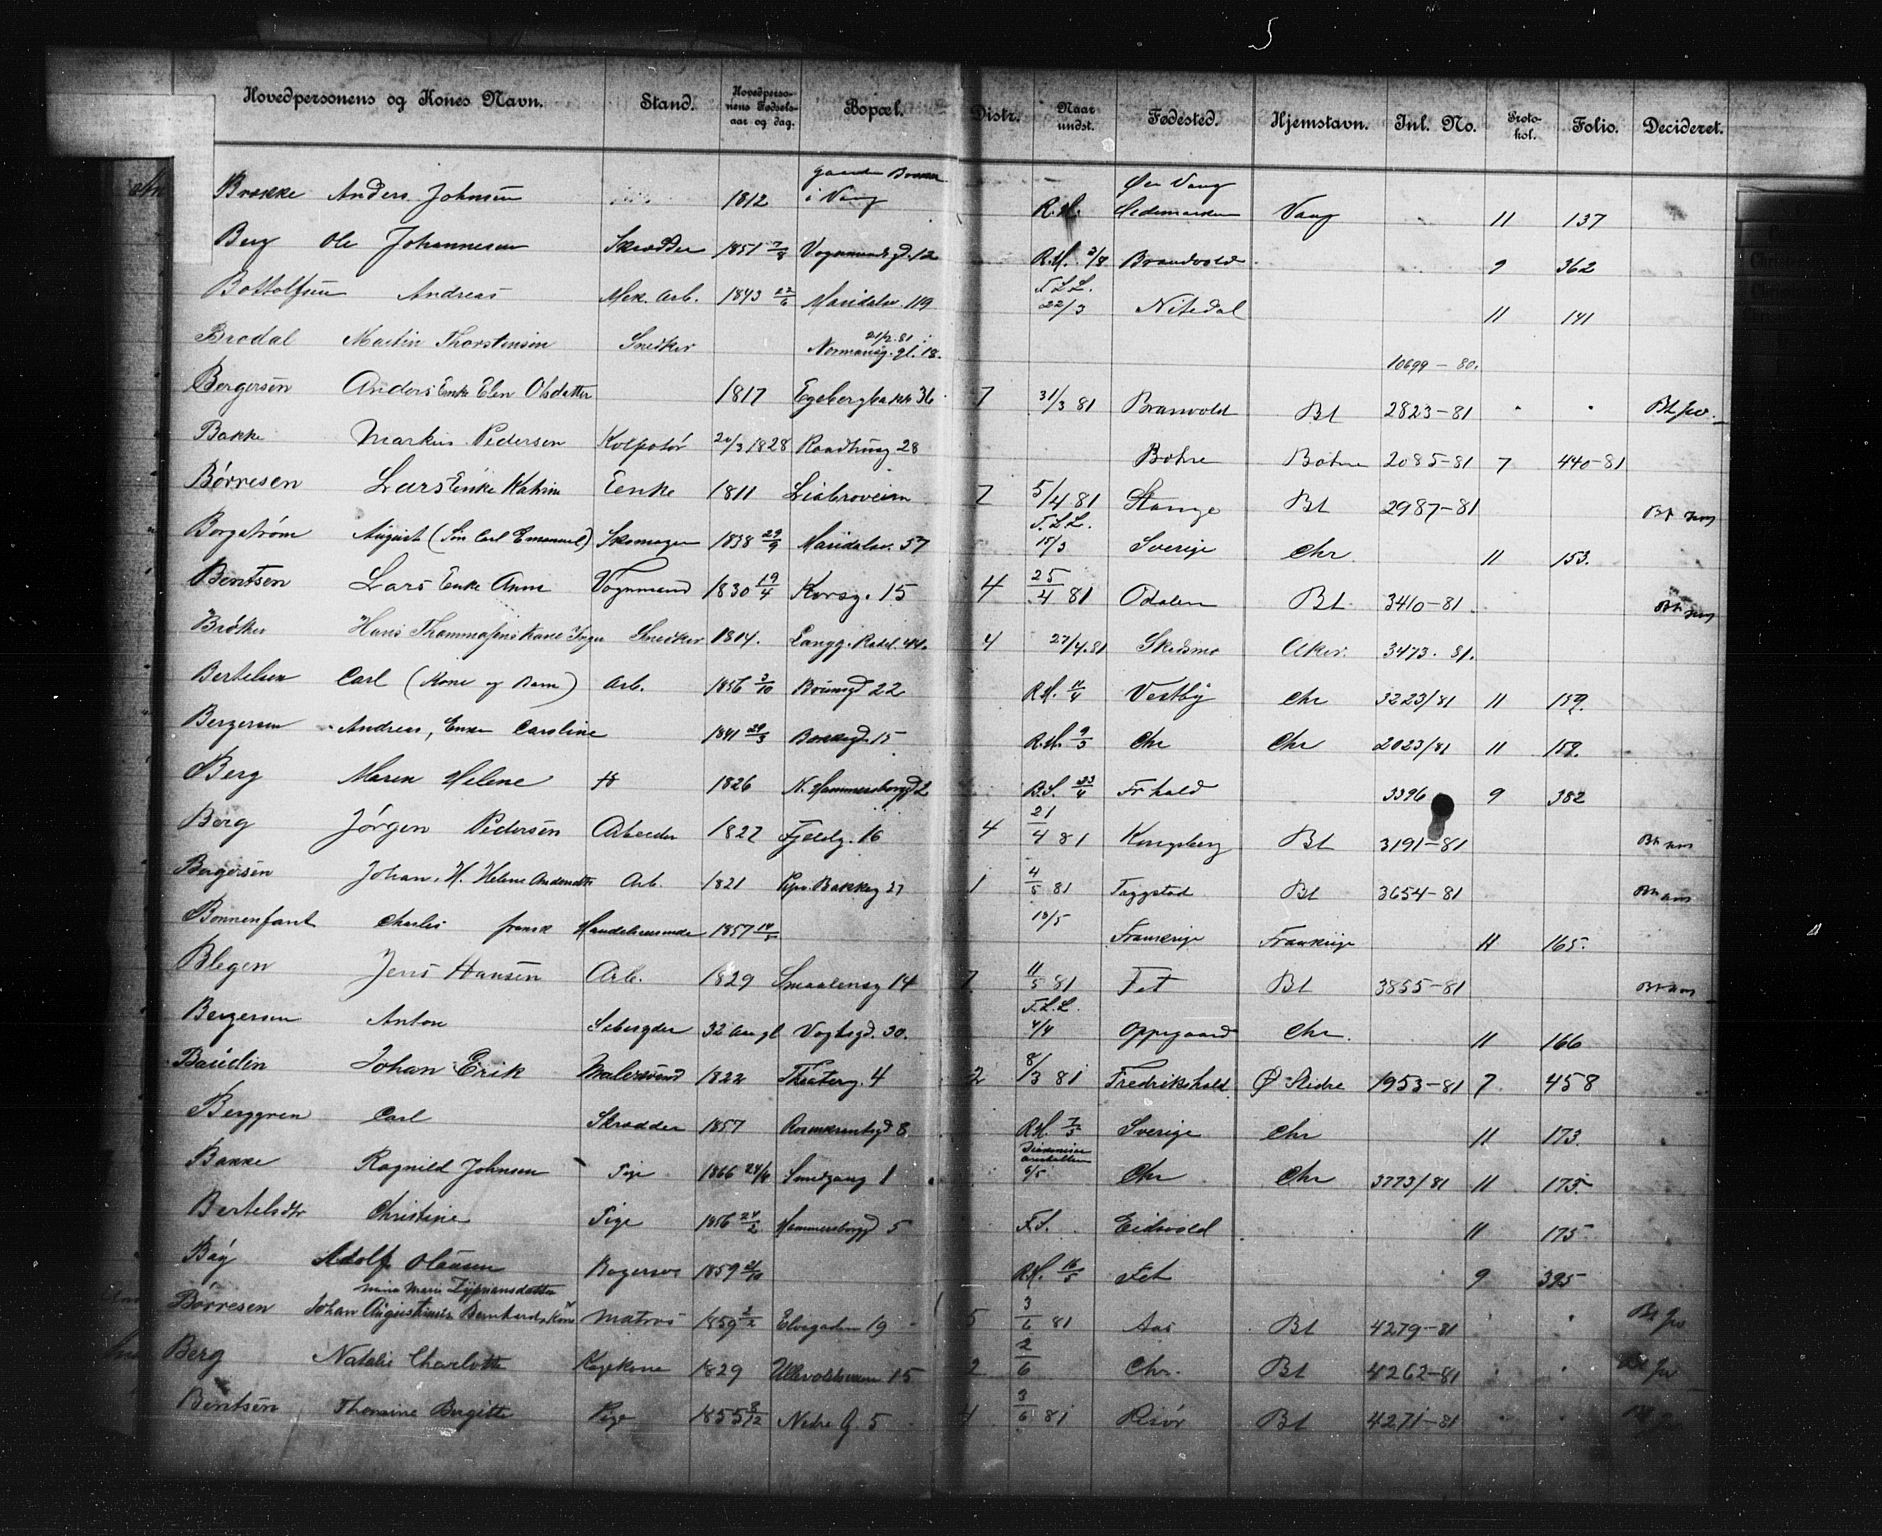 5
Hovedpersonens og Kones Navn. Stand. Hovedpersonens Fødselsaar og dag. Bopæl. Distr. Naar undst. Fødested. Hjemstavn. Inl. No. Protokol. Folio. Decideret.
Brække Anders Johnsen 1812 i Vang R.H. Hedemarken Vang 11 137
Berg Ole Johannesen Skrædder 1851 7/8 Vognmandsgd. 12 R.H. 3/8 Brandvold 9 362
Bottolfsen Andreas Mek. Arb. 1843 22/6 Maridalsv. 119 T.L.L. 22/3 Nitedal 11 141
Brodal Martin Thorstensen Snedker 21/2 81 Normansg. 18. 10699 - 80.
Bergersen Anders Enke Elen Olsdatter 1817 Egebergbakk 36 7 31/3 81 Branvold Bt 2823-81 Bt
Bakke Markus Pedersen Kolpotør 20/3 1828 Raadhusg 28 Bohne Bohne 2085-81 7 440-81
Børresen Lars Enke Katrin Eenke 1811 Liabroveien 7 5/4 81 Stange Bt 2987-81 Bt
Borgstrøm August (Søn Carl Emanuel) Skomager 1838 29/9 Maridalsv. 57 T.L.L. 15/3 Sverige Chr. 11 153.
Bentsen Lars Enke Anne Vognmand 1830 19/4 Korsg. 15 4 25/4 81 Odalen Bt. 3410-81. Bt
Bråten Hans Kone Snedker 1814. Langg. 44. 4 27/4.81 Skedsmo Aker. 3473. 81.
Bertelsen Carl (Kone og Barn) Arb. 1856 3/10 22 R.H. 11/4 Vestby Chr 3223/81 11 159.
Bergersen Andreas, Enke Caroline 1841 29/3 Bakkegd. 15 R.H. 9/3 Chr Chr 2023/81 11 159.
Berg Maren Helene 1826 N. Hammersborggd 2 23/4 Frhald 3396 9 382
Berg Jørgen Pedersen Arbeider 1827 Fjeldg. 16 4 21/4 81 Kongsberg Bt 3191-81 Bt
Bergersen Johan. H. Helene Andersdtr Arb. 1821 Bakkeg 27 1 4/5 81 Bt 3654-81 Bt
Bonnenfant Charles fransk Handelsreisende 1857 18/5 Frankrige Frankrige 11 165.
Blegen Jens Hansen Arb. 1829 Smaalensg 14 7 11/5 81 Fet Bt 3855-81 Bt
Bergersen Anton 32 Aar gl Vogtsgd. 30. T.L.L. 4/4 Oppegaard Chr. 11 166
Baudin Johan Erik Malersvend 1822 Theaterg. 4 2 8/3 81 Fredrikshald. Ø. Slidre 1953-81 7 458
Berggren Carl Skrædder 1857 Rosenkrantzgd 8. R.H. 7/5 Sverige Chr 11 173.
Bakke Ragnild Johnsen Pige 1866 24/4 Smedgang 1 6/5 Chr Chr 3773/81 11 175.
Bertelsdtr Christine Pige 1856 24/2 Hammersborggd 5 F.S. Eidsvold 11 175
Bay Adolf Olausen Bagersv 1859 21/10 R.H. 16/5 Fet 9 395
Børresen Johan Augustinus Bernhard Kone Matros 1859 2/2 Elvegaden 19 5 3/6 81 Aas Bt 4279-81 Bt
Berg Natalie Charlotte 1829 Ullevoldsveien 15 2 2/6 Chr. Bt 4262-81 Bt
Bentsen Thomine Bergitte Pige 1855 8/12 Nedre G. 5 4 3/6 81 Risør Bt 4271-81 Bt